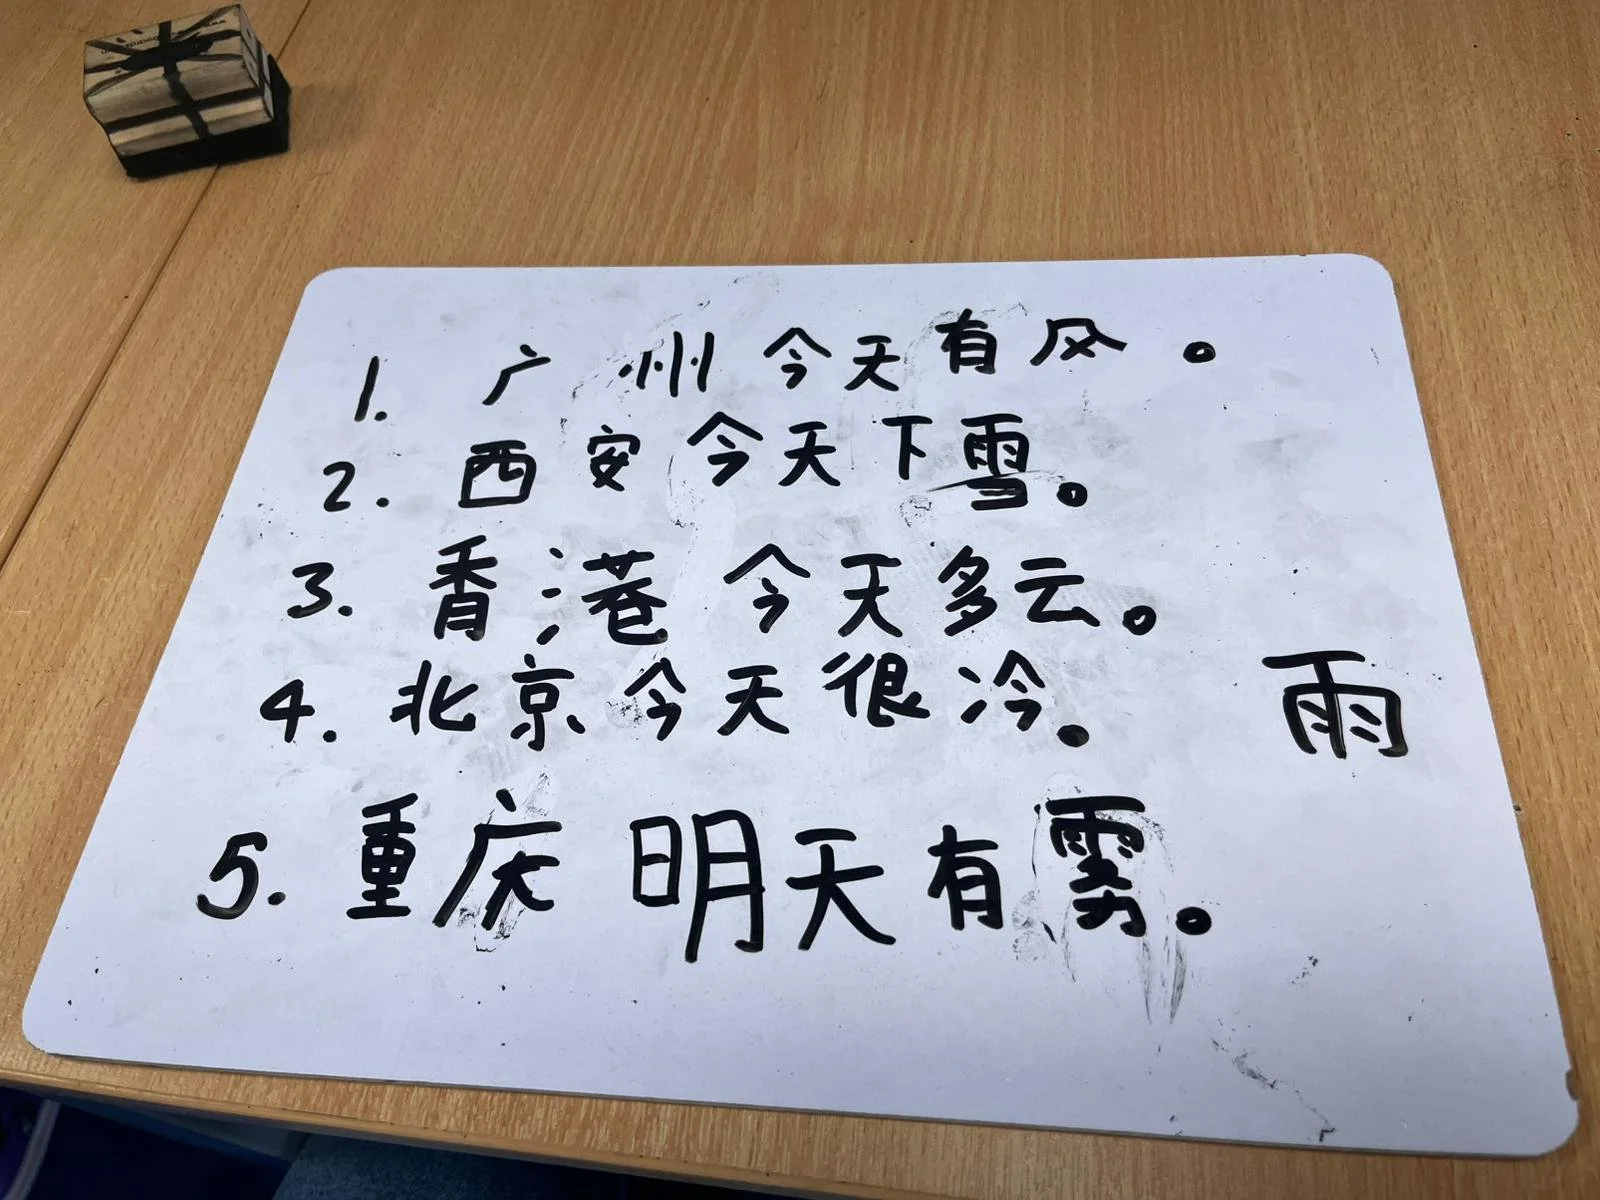 1. 广州今天有风。
2. 西安今天下雪。
3. 香港今天多云。
4. 北京今天很冷.
雨
5. 重庆明天有雾。